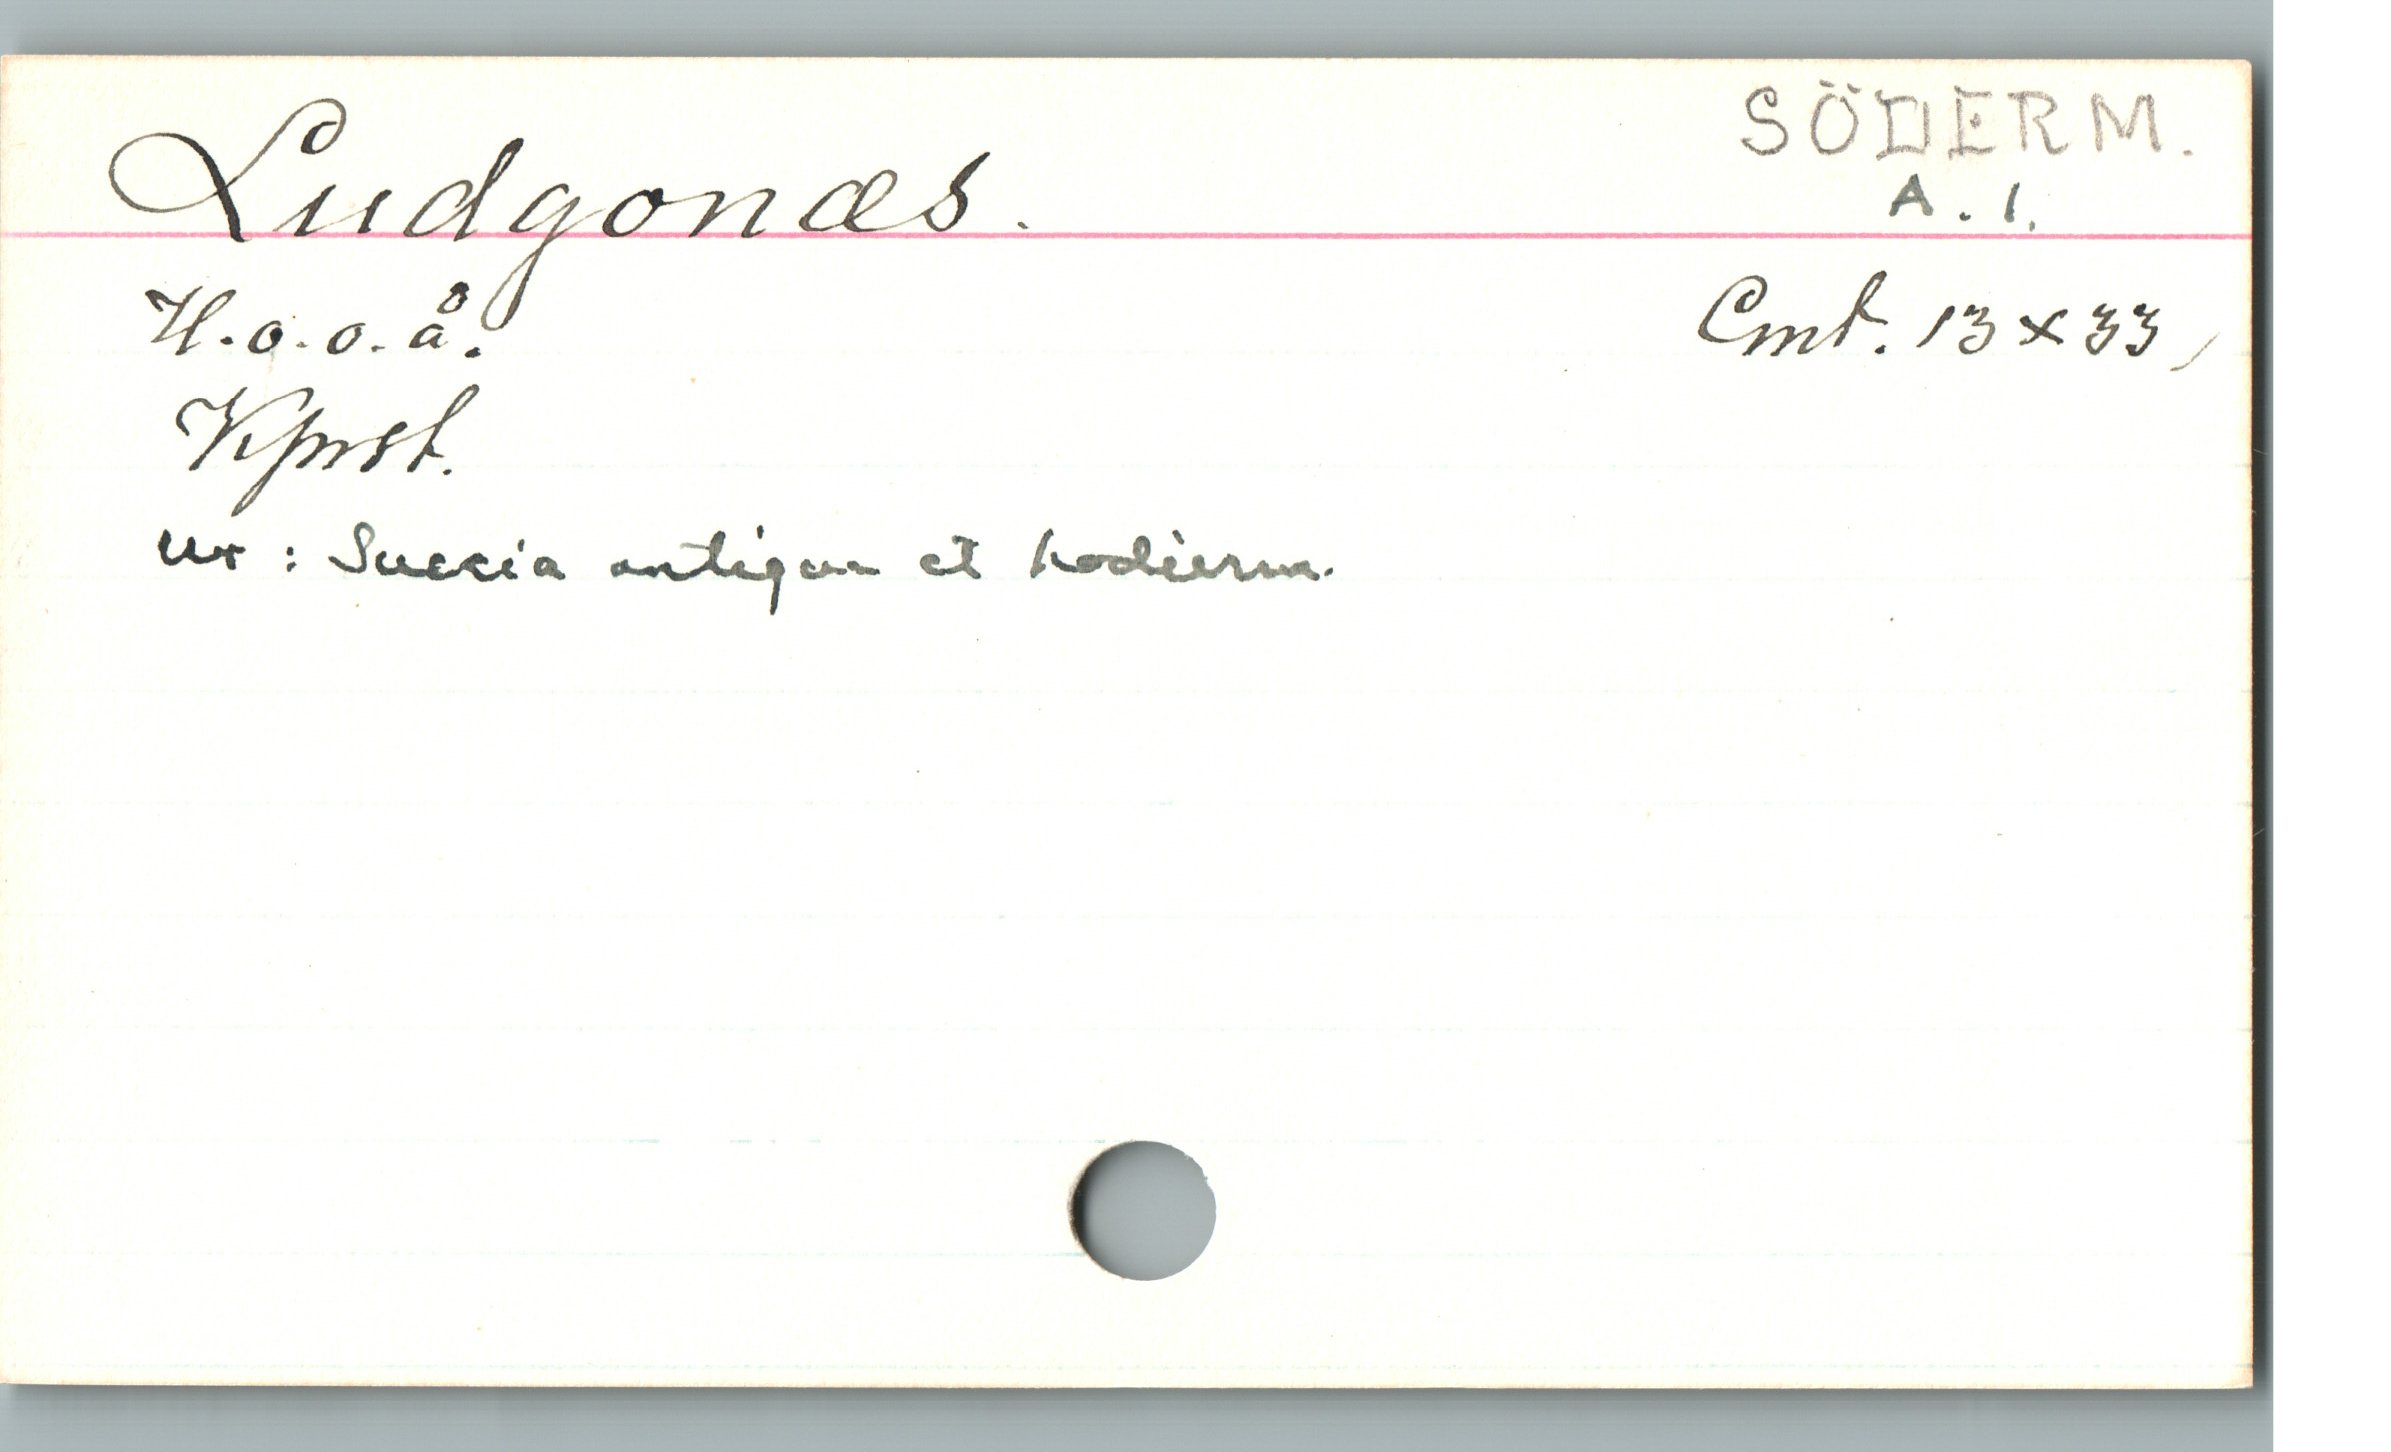 SÖDERM.
Ludgonæs.
A. 1.
H. o. o. å.
Cmt. 13 x 33,
Kpmst.
Ur: Suecia antiqua et hodierna.